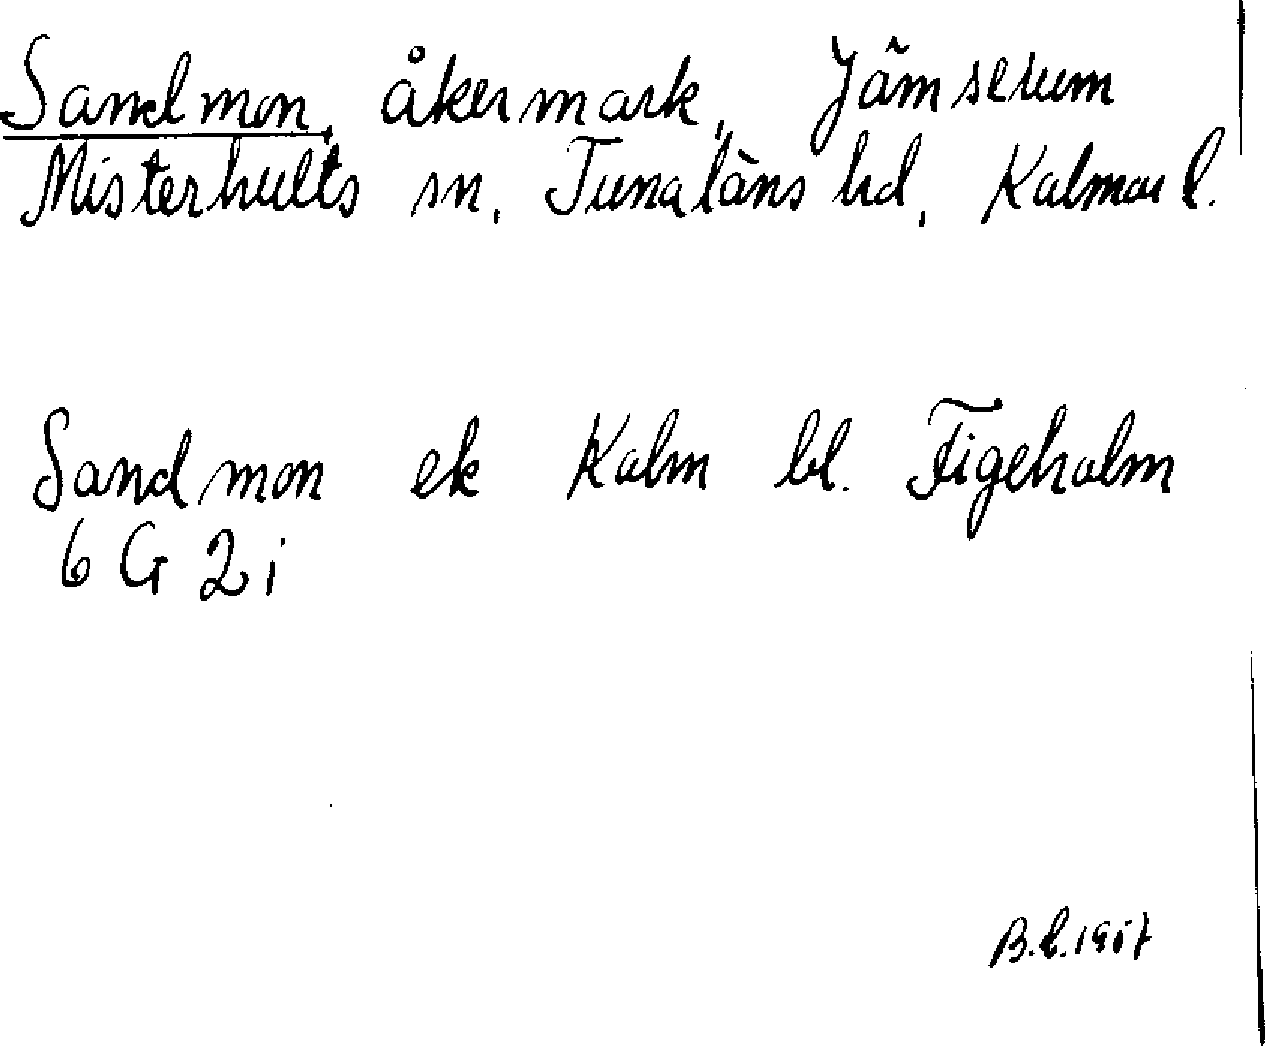 Sandmon, åkermark, Jämserum
Misterhults sn, Tunaläns hd, Kalmar l.
Sandmon ek Kalm bl. Figeholm
6 G 2 i